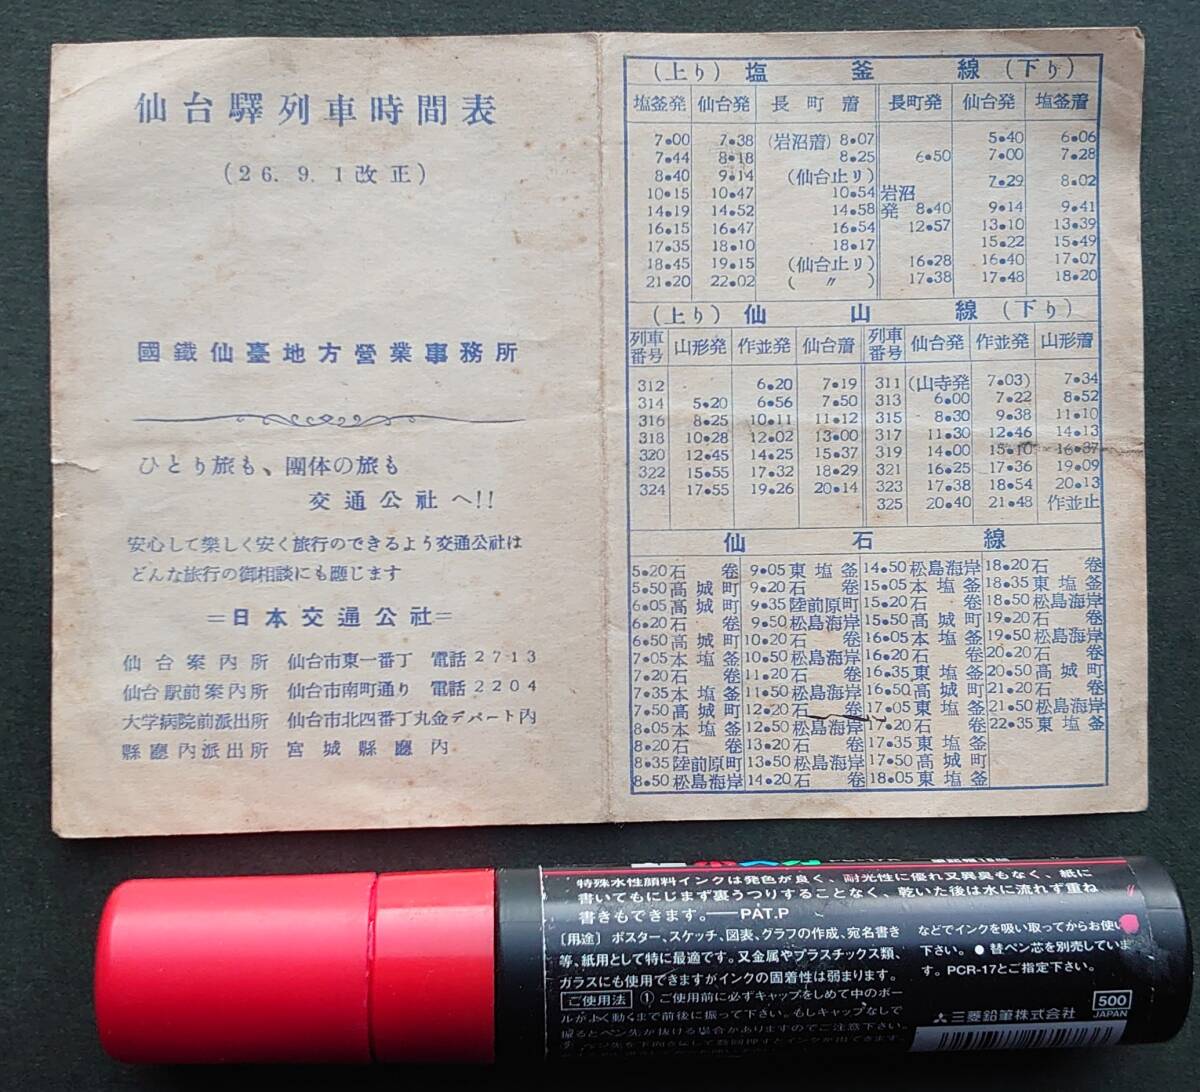 仙台驛列車時間表
(26.9.1改正)
國鐵仙臺地方營業事務所
ひとり旅も、團体の旅も
交通公社へ!!
安心して樂しく安く旅行のできるよう交通公社は
どんな旅行の御相談にも應じます
=日本交通公社=
仙台案内所 仙台市東一番丁 電話2713
仙台駅前案内所 仙台市南町通り 電話2204
大学病院前派出所 仙台市北四番丁丸金デパート内
縣廳内派出所 宮城縣廳内
(上り) 塩釜線 (下り)
塩釜発 仙台発 長町着 長町発 仙台発 塩釜着
7•00 7•38 (岩沼着) 8•07 5•40 6•06
7•44 8•18 8•25 6•50 7•00 7•28
8•40 9•14 (仙台止り) 7•29 8•02
10•15 10•47 10•54 岩沼
14•19 14•52 14•58 発 8•40 9•14 9•41
16•15 16•47 16•54 12•57 13•10 13•39
17•35 18•10 18•17 15•22 15•49
18•45 19•15 (仙台止り) 16•28 16•40 17•07
21•20 22•02 (〃) 17•38 17•48 18•20
(上り) 仙山線 (下り)
列車番号 山形発 作並発 仙台着 列車番号 仙台発 作並発 山形着
312 6•20 7•19 311 (山寺発 7•03) 7•34
314 5•20 6•56 7•50 313 6•00 7•22 8•52
316 8•25 10•11 11•12 315 8•30 9•38 11•10
318 10•28 12•02 13•00 317 11•30 12•46 14•13
320 12•45 14•25 15•37 319 14•00 15•10 16•37
322 15•55 17•32 18•29 321 16•25 17•36 19•09
324 17•55 19•26 20•14 323 17•38 18•54 20•13
325 20•40 21•48 作並止
仙石線
5•20 石巻 9•05 東塩釜 14•50 松島海岸 18•20 石巻
5•50 高城町 9•20 石巻 15•05 本塩釜 18•35 東塩釜
6•05 高城町 9•35 陸前原町 15•20 石巻 18•50 松島海岸
6•20 石巻 9•50 松島海岸 15•50 高城町 19•20 石巻
6•50 高城町 10•20 石巻 16•05 本塩釜 19•50 松島海岸
7•05 本塩釜 10•50 松島海岸 16•20 石巻 20•20 石巻
7•20 石巻 11•20 石巻 16•35 東塩釜 20•50 高城町
7•35 本塩釜 11•50 松島海岸 16•50 高城町 21•20 石巻
7•50 高城町 12•20 石巻 17•05 東塩釜 21•50 松島海岸
8•05 本塩釜 12•50 松島海岸 17•20 石巻 22•35 東塩釜
8•20 石巻 13•20 石巻 17•35 東塩釜
8•35 陸前原町 13•50 松島海岸 17•50 高城町
8•50 松島海岸 14•20 石巻 18•05 東塩釜
特殊水性顔料インクは発色が良く、耐光性に優れ又異臭もなく、紙に
書いてもにじまず裏うつりすることなく、乾いた後は水に流れず重ね
書きもできます。──PAT.P
〔用途〕ポスター、スケッチ、図表、グラフの作成、宛名書き
等、紙用として特に最適です。又金属やプラスチックス類、
ガラスにも使用できますがインクの固着性は弱まります。
ご使用法 ① ご使用前に必ずキャップをしめて中のボー
ルがよく動くまで前後に振って下さい。もしキャップなしで
振るとペン先が抜ける場合がありますのでご注意下さい。
などでインクを吸い取ってからお使い
下さい。●替ペン芯を別売していま
す。PCR-17とご指定下さい。
500
JAPAN
三菱鉛筆株式会社